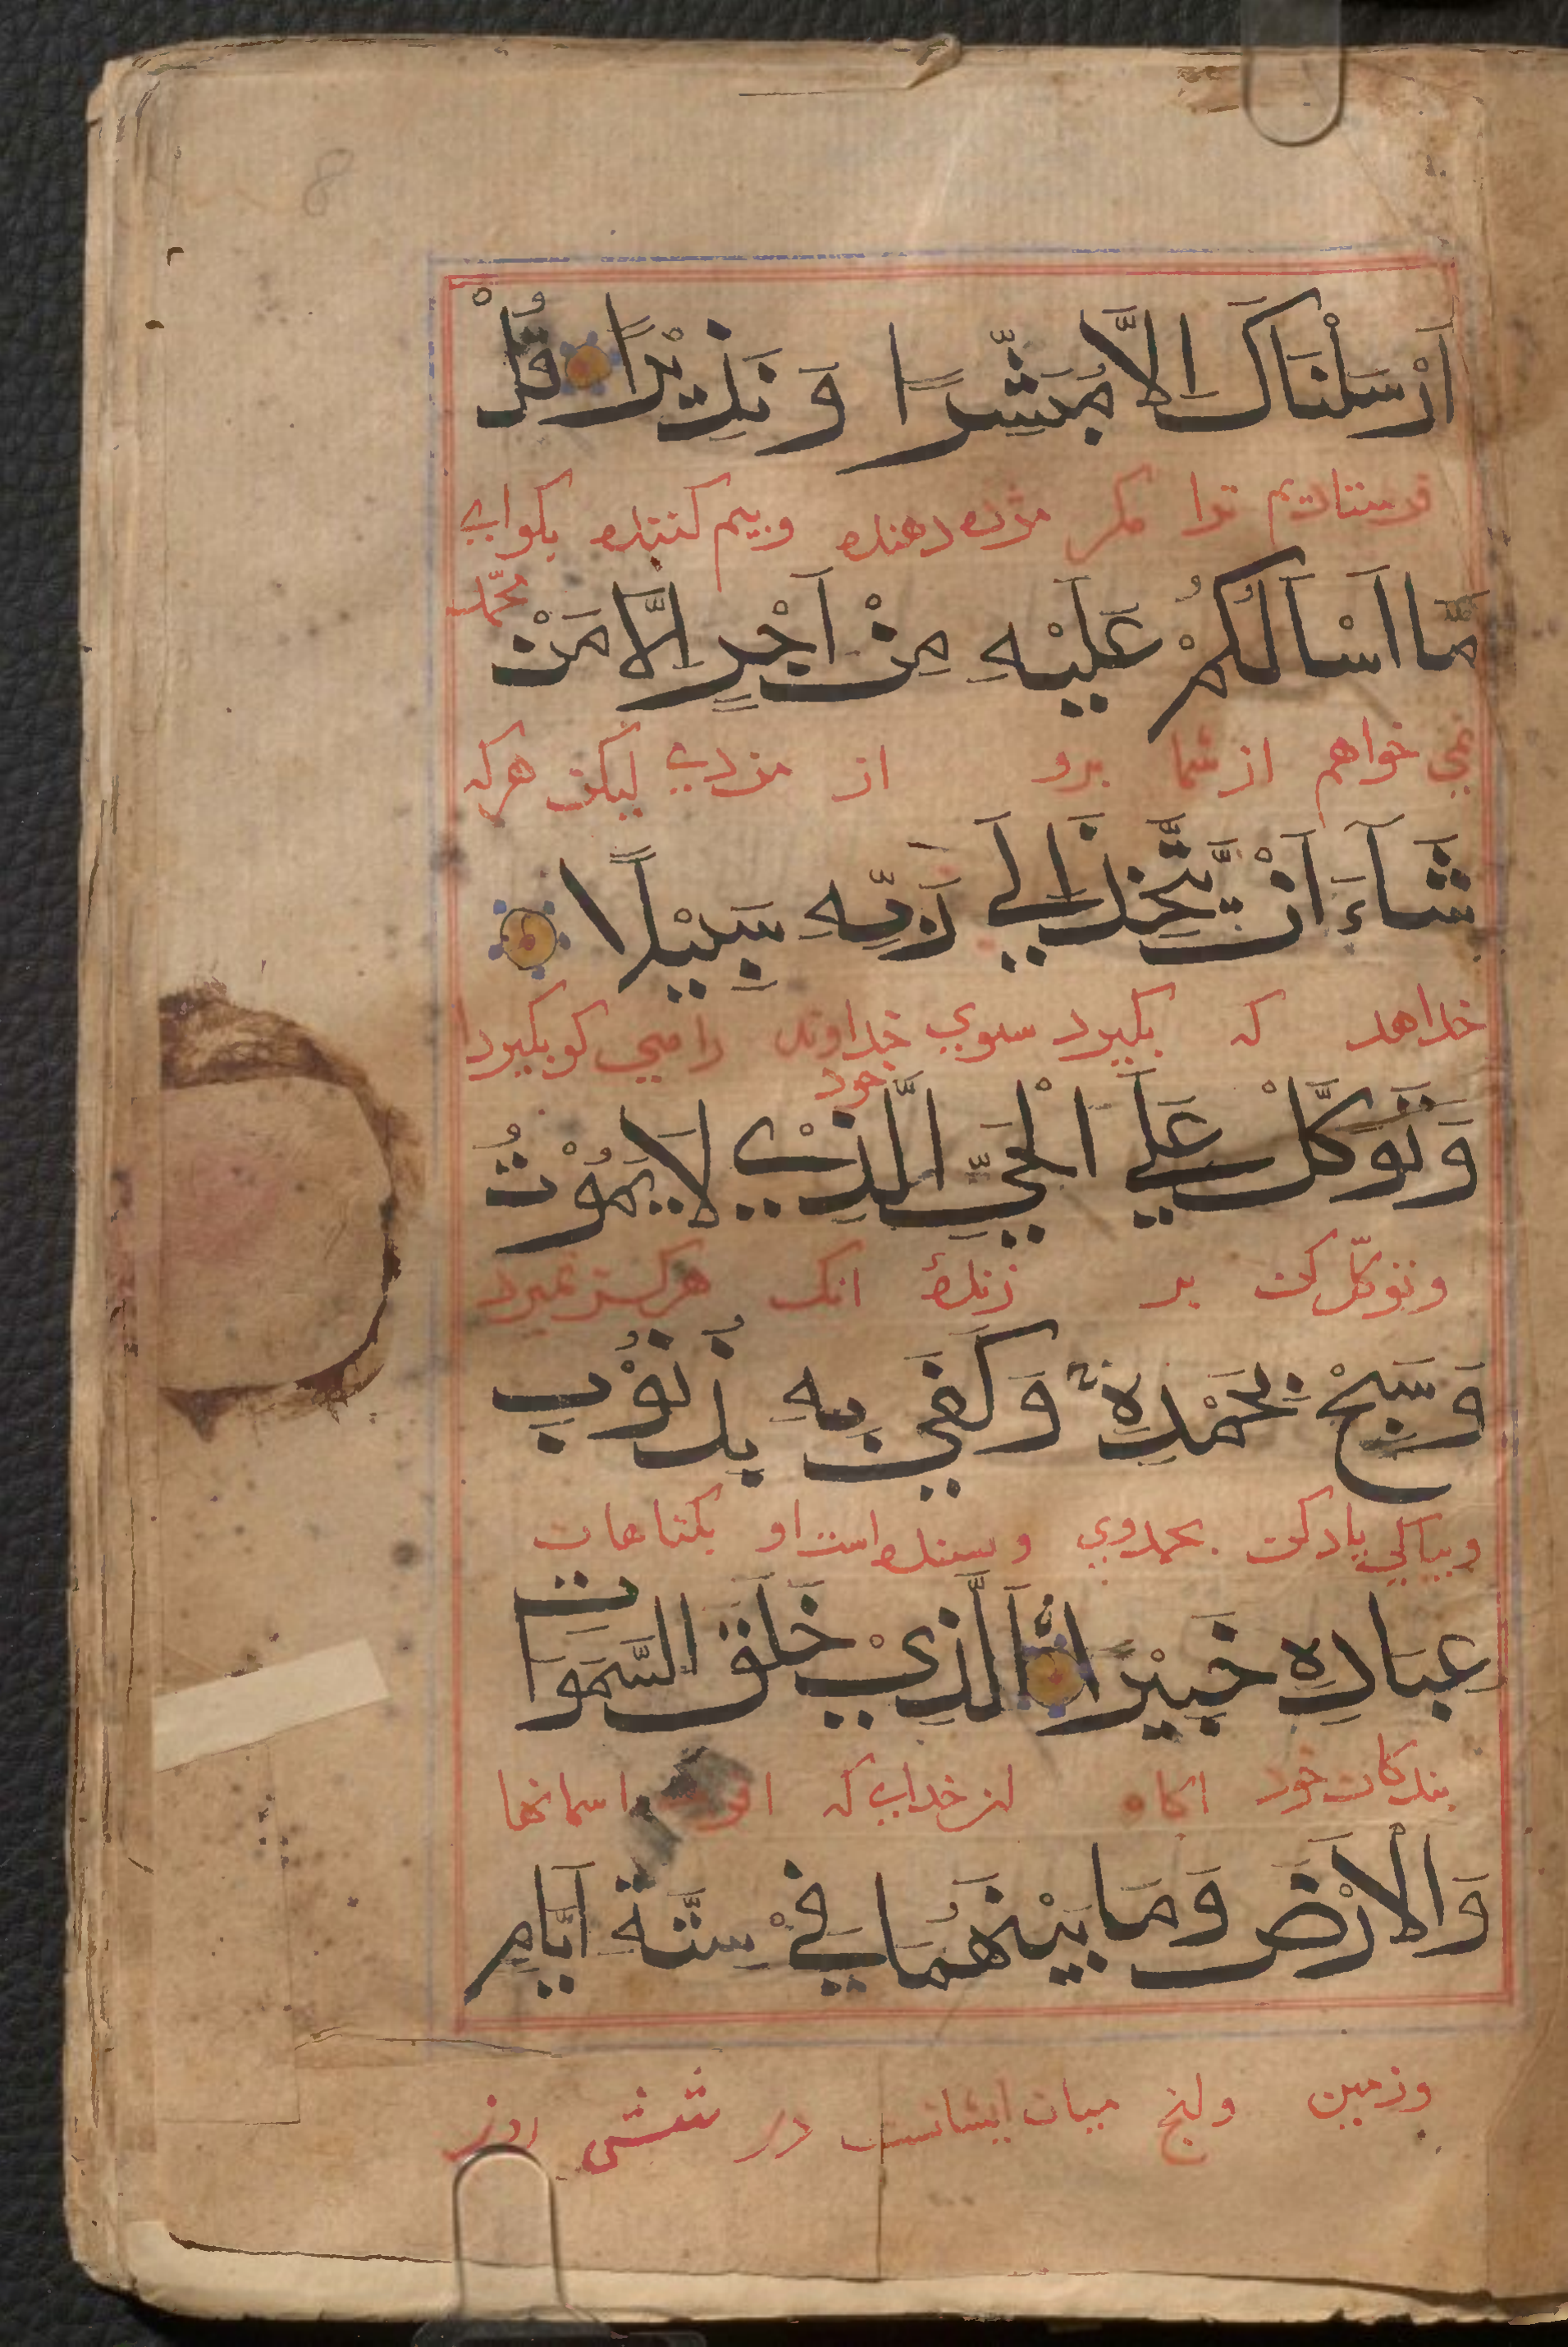 اَرْسَلْنَاكَ اِلَّا مُبَشِّرًا وَ نَذِيْرًا قُلْ
فرستاديم ترا مكر مژده دهنده وبيم كننده بكو اي
محمّد
مَّا اَسْاَلُكُمْ عَلَيْهِ مِنْ اَجْرٍ اِلَّا مَنْ
نمي خواهم از شما برو از مزدي ليكن هركه
شَآءَ اَنْ يَّتَّخِذَ اِلَي رَبِّهِ سَبِيْلًا
خداهد كه بكيرد سوي خداوند راهي كو بكيردا
خود
وَتَوَكَّلْ عَلَي الْحَيِّ الَّذِيْ لَا يَمُوْتُ
وتوكّل كن بر زندۀ انك هركز نميرد
وَسَبِّحْ بِحَمْدِهِ وَكَفَي بِهِ بِذُنُوْبِ
وبپاكي ياد كن بحمد وي و بسنده است او بكناهان
عِبَادِهِ خَبِيْرًا اۨلَّذِيْ خَلَقَ السَّمَوَاتِ
بندكان خود اكاه ان خداي كه اسمانها
وَالْاَرْضَ وَمَا بَيْنَهُمَا فِيْ سِتَّةِ اَيَّامٍ
وزمين وانچ ميان ايشانست در شش روز